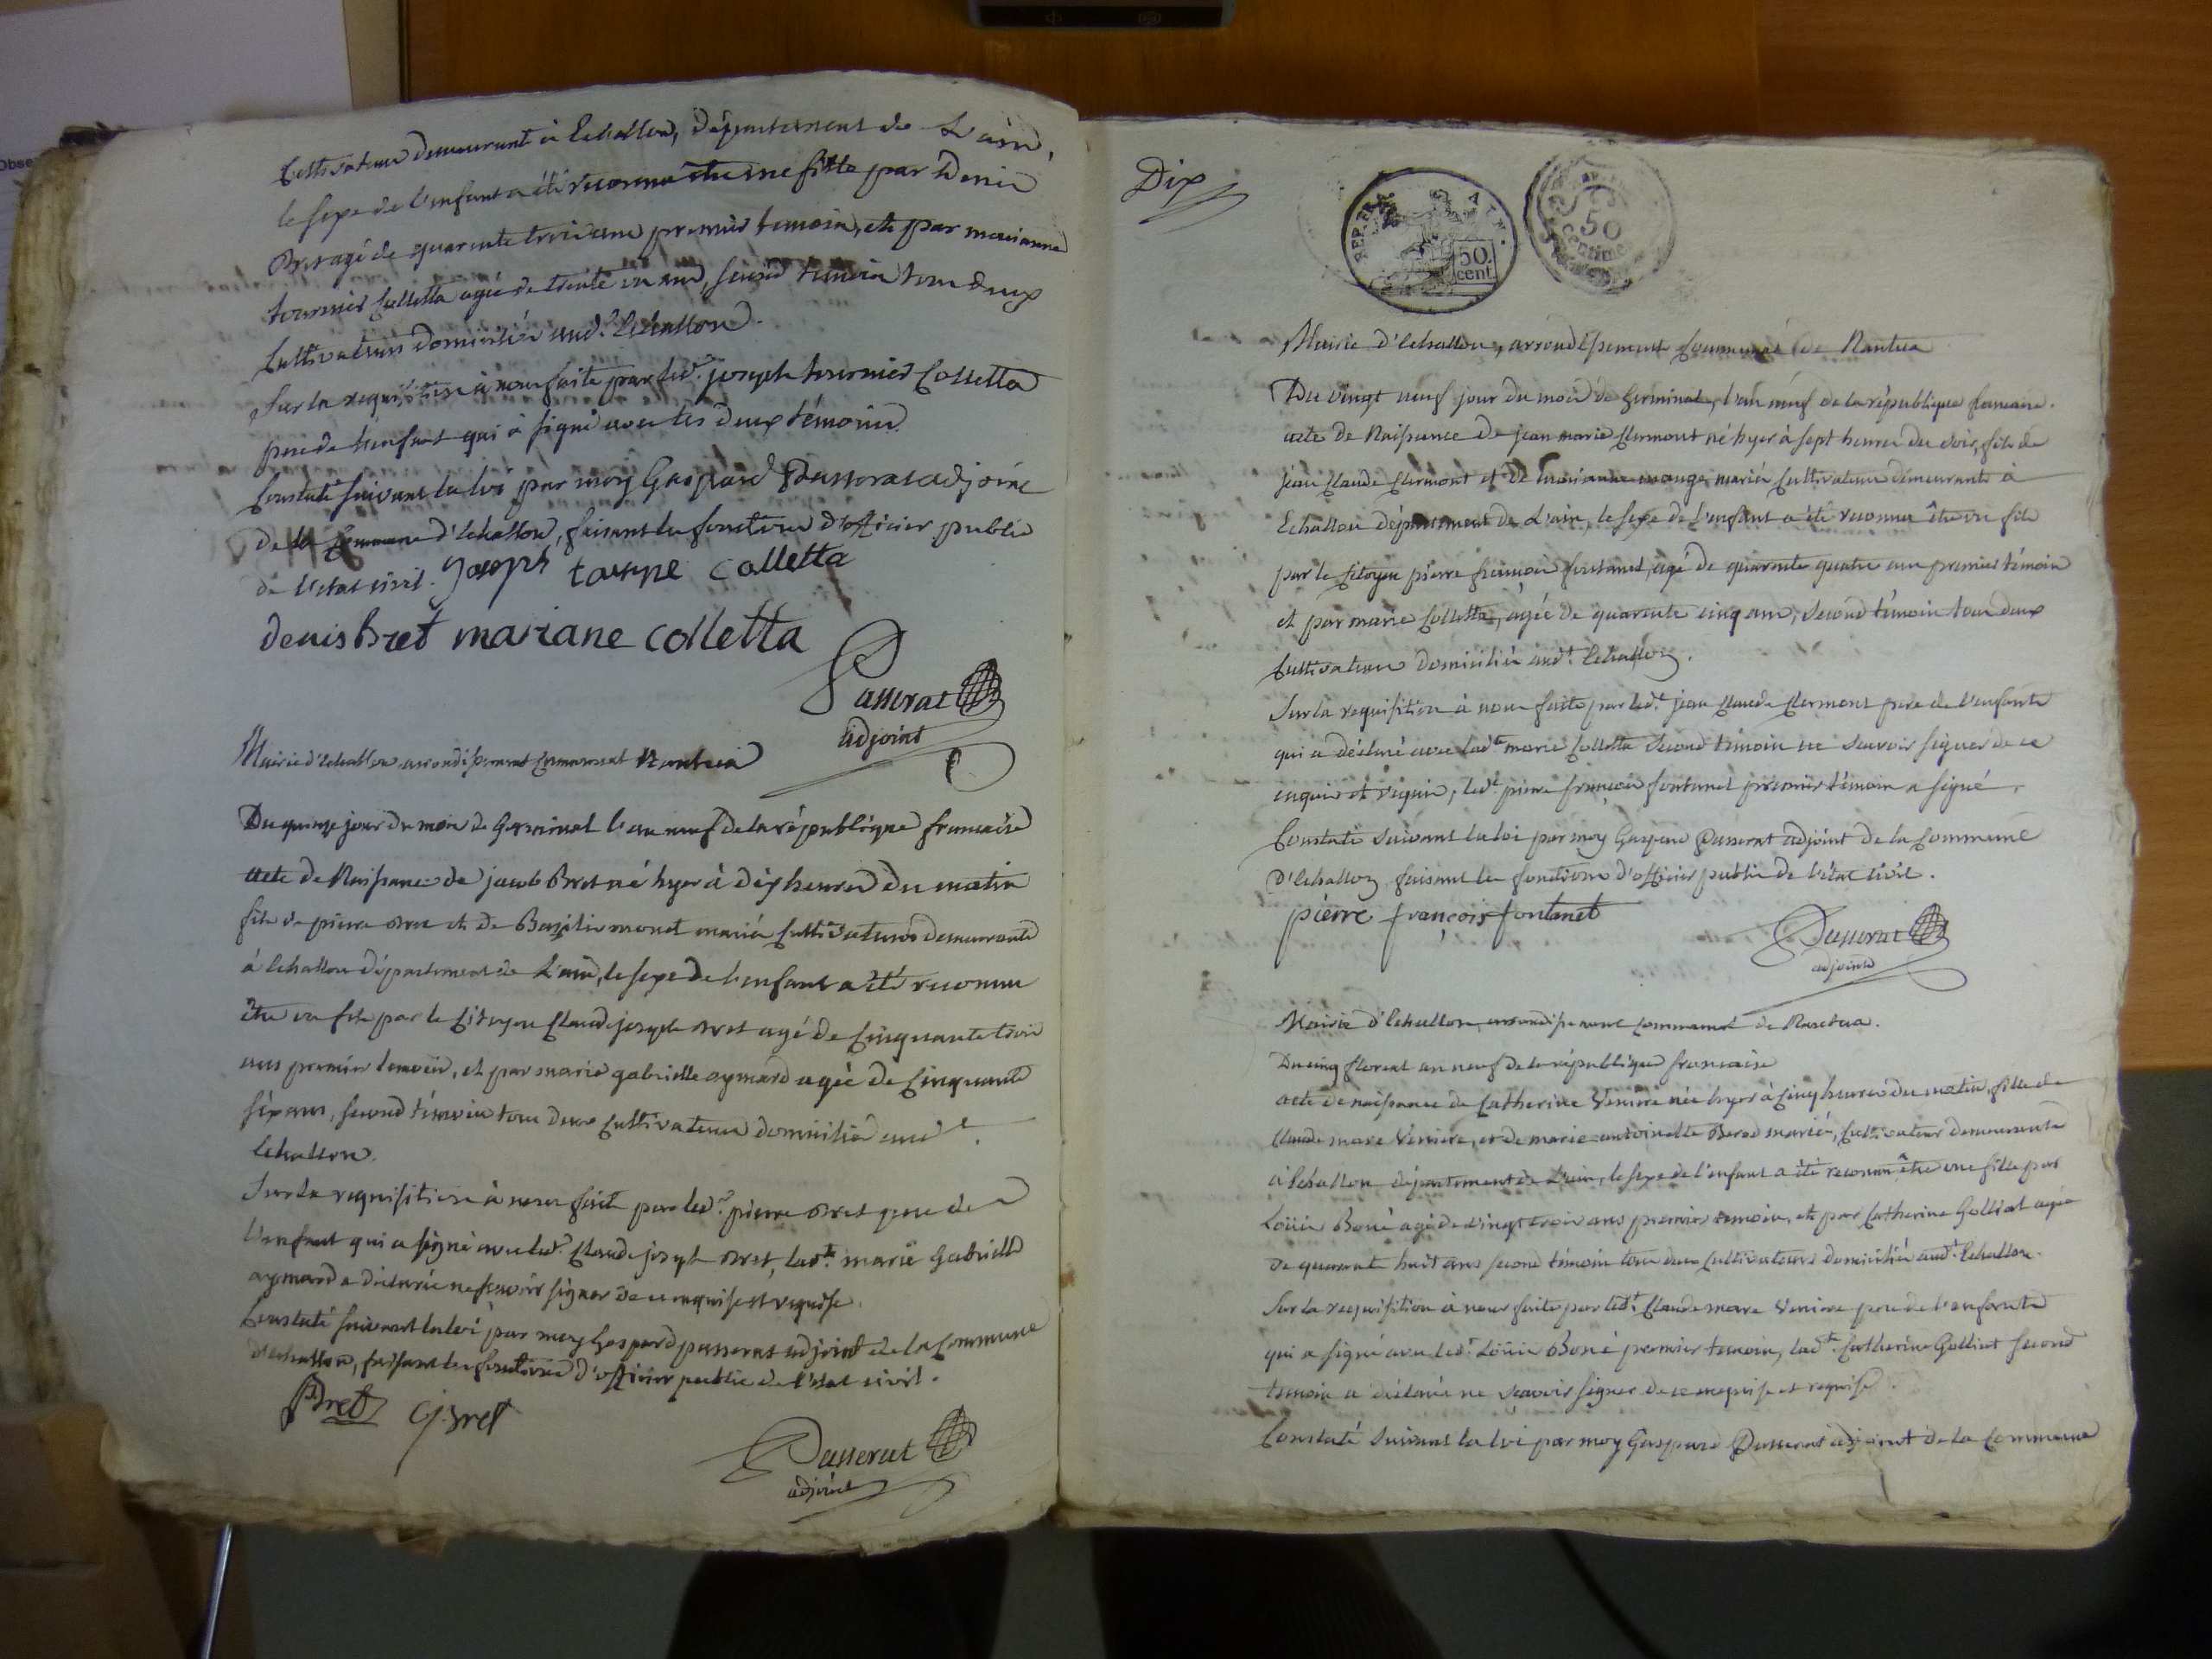 Cultivateur demeurant à Echallon, département de L'ain,
le sexe de l'enfant a été reconnu être une fille par Denis
Bret agé de quarente trois ans premier temoin, et par marianne
tournier Colletta agée de trente un ans, second temoin tous deux
Cultivateurs domiciliés aud.t Echallon.
Sur la requisition à nous faite par led.t joseph tournier Colletta
pere de l'enfant qui à signé avec les deux témoins
Constaté suivant la loi par moy Gaspard Passerat adjoint
de la Commune d'Echallon, faisant les fonctions d'officier public
de l'etat civil. Joseph colletta
denis Bret mariane colletta
Passerat
adjoint
Mairie d'Echallon arrondissement Communal Nantua
Du quinze jour du mois de Germinal l'an neuf de la république francaise
acte de Naissance de jacob Bret né hyer à dix heures du matin
fils de pierre Bret et de Bazilie monet mariés Cultivateurs demeurants
à Echallon département de L'ain, le sexe de l'enfant a été reconnu
être un fils par le Citoyen Claude joseph Bret agé de Cinquante trois
ans premier temoin, et par marie gabrielle aymard agée de Cinquante
six ans, second témoin tous deux Cultivateurs domiciliés aud.t
Echallon.
Sur la requisition à nous fait par led.t pierre Bret pere de
l'enfant qui a signé avec led.t Claude joseph Bret, lad.te marie Gabrielle
aymard a déclarée ne scavoir signer de ce enquise et requise.
Constaté suivant la loi par moy Gaspard passerat adjoint de la Commune
d'echallon, faisant les fonctions d'officier public de l'etat civil.
Bret CjBret
Passerat
adjoint
Dix
REP. FRA
50.
cent.
50
centimes
Mairie d'Echallon, arrondissement Communal de Nantua
Du vingt neuf jour du mois de Germinal, l'an neuf de la république francaise.
acte de Naissance de jean marie Clermont né hyer à sept heures du soir, fils de
jean Claude Clermont et de marianne mariés Cultivateurs demeurants à
Echallon département de L'ain, le sexe de l'enfant a été reconnu être un fils
par le Citoyen pierre françois fontanet, agé de quarente quatre ans premier témoin
et par marie Colletta, agée de quarente cinq ans, second témoin tous deux
Cultivateurs domiciliés aud.t Echallon.
Sur la requisition à nous faite par led.t jean Claude Clermont pere de l'enfant
qui a déclaré avec lad.te marie Colletta second témoin ne scavoir signer de ce
enquis et requis, led.t pierre françois fontanet premier témoin a signé.
Constaté suivant la loi par moy Gaspard Passerat adjoint de la Commune
d'Echallon faisant les fonctions d'officier public de l'état civil.
pierre françois fontanet
Passerat
adjoint
Mairie d'Echallon arrondissement communal de Nantua.
Du cinq floreal an neuf de la république francaise
acte de naissance de Catherine Veniere née hyer à Cinq heures du matin, fille de
Claude marc Veniere, et de marie antoinette mariés, Cultivateur demeurants
à Echallon département de L'ain, le sexe de l'enfant a été reconnu être une fille par
Loüis Boné agé de vingt trois ans premier temoin, et par Catherine Golliat agée
de quarante huit ans second témoin tous deux Cultivateurs domiciliés aud.t Echallon.
Sur la requisition à nous faite par led.t Claude marc Veniere pere de l'enfant
qui a signé avec led.t Loüis Boné premier temoin, lad.te Catherine Golliat second
temoin a déclarée ne sçavoir signer de ce enquise et requise.
Constaté suivant la loi par moy Gaspard Passerat adjoint de la Commune